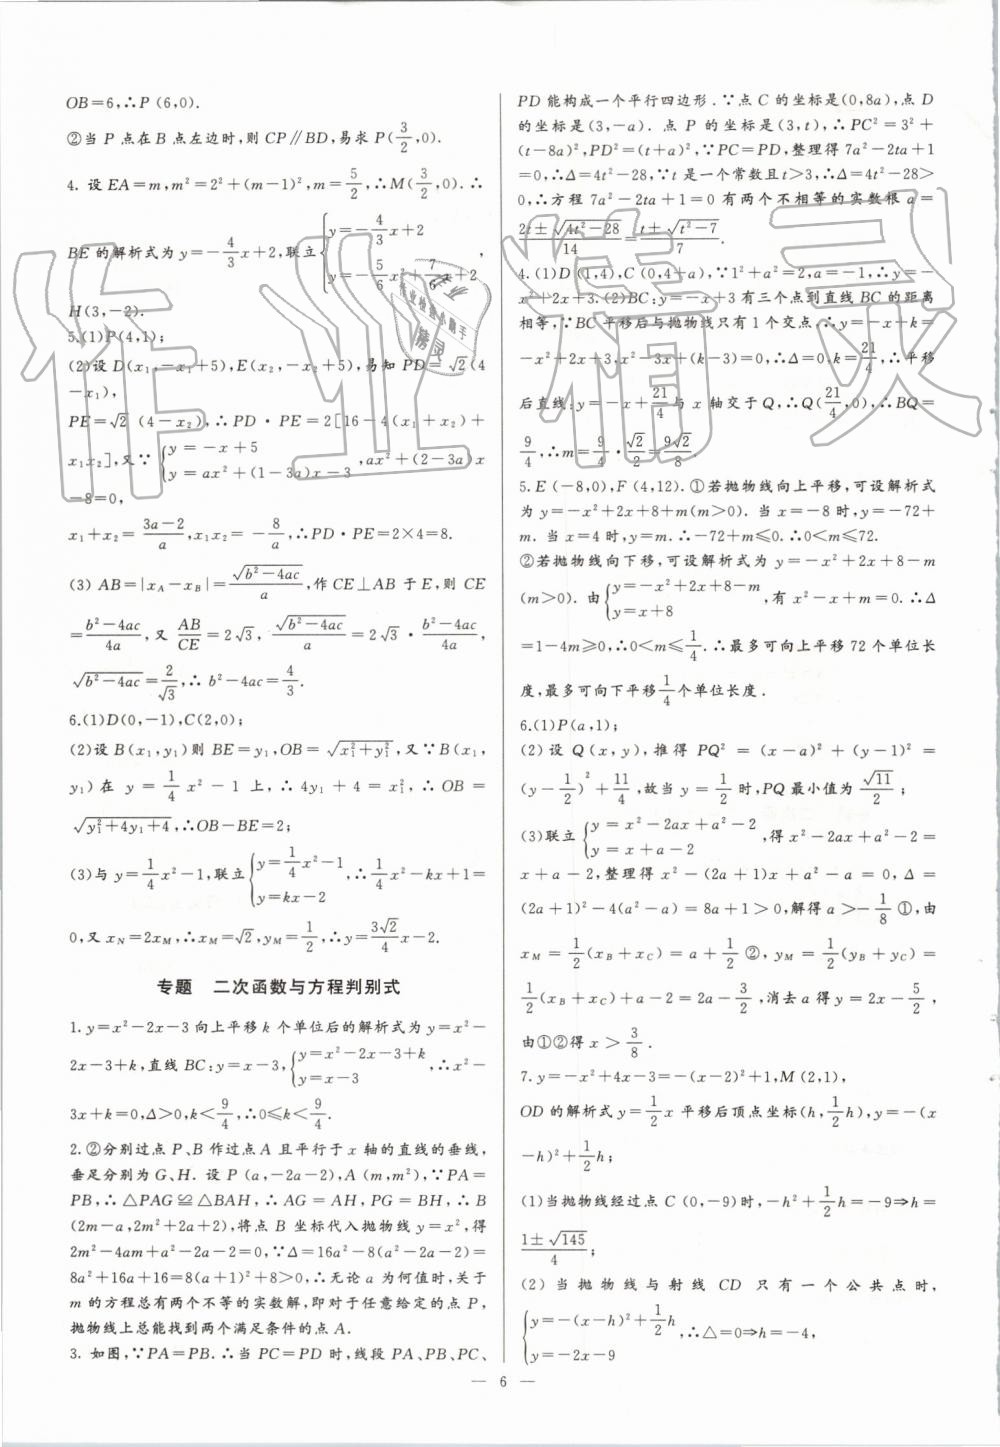 OB=6,∴P(6,0).
②当P点在B点左边时,则CP∥BD,易求P(3/2,0).
4. 设EA=m,m²=2²+(m-1)²,m=5/2,∴M(3/2,0).∴
BE的解析式为y=-4/3x+2,联立{y=-4/3x+2, y=-5/6x²+7/6x+2,
H(3,-2).
5.(1)P(4,1);
(2)设D(x₁,-x₁+5),E(x₂,-x₂+5),易知PD=√2(4
-x₁),
PE=√2(4-x₂),∴PD·PE=2[16-4(x₁+x₂)+
x₁x₂],又∵{y=-x+5, y=ax²+(1-3a)x-3,ax²+(2-3a)x
-8=0,
x₁+x₂=(3a-2)/a,x₁x₂=-8/a,∴PD·PE=2×4=8.
(3)AB=|x_A-x_B|=√(b²-4ac)/a,作CE⊥AB于E,则CE
=(b²-4ac)/4a,又AB/CE=2√3,√(b²-4ac)/a=2√3·(b²-4ac)/4a,
√(b²-4ac)=2/√3,∴b²-4ac=4/3.
6.(1)D(0,-1),C(2,0);
(2)设B(x₁,y₁)则BE=y₁,OB=√(x₁²+y₁²),又∵B(x₁,
y₁)在y=1/4x²-1上,∴4y₁+4=x₁²,∴OB=
√(y₁²+4y₁+4),∴OB-BE=2;
(3)与y=1/4x²-1,联立{y=1/4x²-1, y=kx-2,∴1/4x²-kx+1=
0,又x_N=2x_M,∴x_M=√2,y_M=1/2,∴y=3√2/4x-2.
专题 二次函数与方程判别式
1. y=x²-2x-3向上平移k个单位后的解析式为y=x²-
2x-3+k,直线BC:y=x-3,{y=x²-2x-3+k, y=x-3,∴x²-
3x+k=0,Δ>0,k<9/4,∴0≤k<9/4.
2.②分别过点P、B作过点A且平行于x轴的直线的垂线,
垂足分别为G、H.设P(a,-2a-2),A(m,m²),∵PA=
PB,∴△PAG≌△BAH,∴AG=AH,PG=BH,∴B
(2m-a,2m²+2a+2),将点B坐标代入抛物线y=x²,得
2m²-4am+a²-2a-2=0,∵Δ=16a²-8(a²-2a-2)=
8a²+16a+16=8(a+1)²+8>0,∴无论a为何值时,关于
m的方程总有两个不等的实数解,即对于任意给定的点P,
抛物线上总能找到两个满足条件的点A.
3. 如图,∵PA=PB.∴当PC=PD时,线段PA、PB、PC、
PD能构成一个平行四边形.∵点C的坐标是(0,8a),点D
的坐标是(3,-a).点P的坐标是(3,t),∴PC²=3²+
(t-8a)²,PD²=(t+a)²,∵PC=PD,整理得7a²-2ta+1
=0,∴Δ=4t²-28,∵t是一个常数且t>3,∴Δ=4t²-28>
0,∴方程7a²-2ta+1=0有两个不相等的实数根a=
(2t±√(4t²-28))/14=(t±√(t²-7))/7.
4.(1)D(1,4),C(0,4+a),∵1²+a²=2,a=-1,∴y=-
x²+2x+3.(2)BC:y=-x+3有三个点到直线BC的距离
相等,∵BC平移后与抛物线只有1个交点,∴y=-x+k=
-x²+2x+3,x²-3x+(k-3)=0,∴Δ=0,k=21/4,∴平移
后直线:y=-x+21/4与x轴交于Q,∴Q(21/4,0),∴BQ=
9/4,∴m=9/4·√2/2=9√2/8.
5. E(-8,0),F(4,12).①若抛物线向上平移,可设解析式
为y=-x²+2x+8+m(m>0).当x=-8时,y=-72+
m.当x=4时,y=m.∴-72+m≤0.∴0<m≤72.
②若抛物线向下移,可设解析式为y=-x²+2x+8-m
(m>0).由{y=-x²+2x+8-m, y=x+8,有x²-x+m=0.∴Δ
=1-4m≥0,∴0<m≤1/4.∴最多可向上平移72个单位长
度,最多可向下平移1/4个单位长度.
6.(1)P(a,1);
(2)设Q(x,y),推得PQ²=(x-a)²+(y-1)²=
(y-1/2)²+11/4,故当y=1/2时,PQ最小值为√11/2;
(3)联立{y=x²-2ax+a²-2, y=x+a-2,得x²-2ax+a²-2=
x+a-2,整理得x²-(2a+1)x+a²-a=0,Δ=
(2a+1)²-4(a²-a)=8a+1>0,解得a>-1/8①,由
x_M=1/2(x_B+x_C)=a+1/2②,y_M=1/2(y_B+y_C)=
1/2(x_B+x_C)+a-2=2a-3/2,消去a得y=2x-5/2,
由①②得x>3/8.
7. y=-x²+4x-3=-(x-2)²+1,M(2,1),
OD的解析式y=1/2x平移后顶点坐标(h,1/2h),y=-(x
-h)²+1/2h;
(1)当抛物线经过点C(0,-9)时,-h²+1/2h=-9⇒h=
(1±√145)/4;
(2)当抛物线与射线CD只有一个公共点时,
{y=-(x-h)²+1/2h, y=-2x-9,∴△=0⇒h=-4,
— 6 —
作业精灵